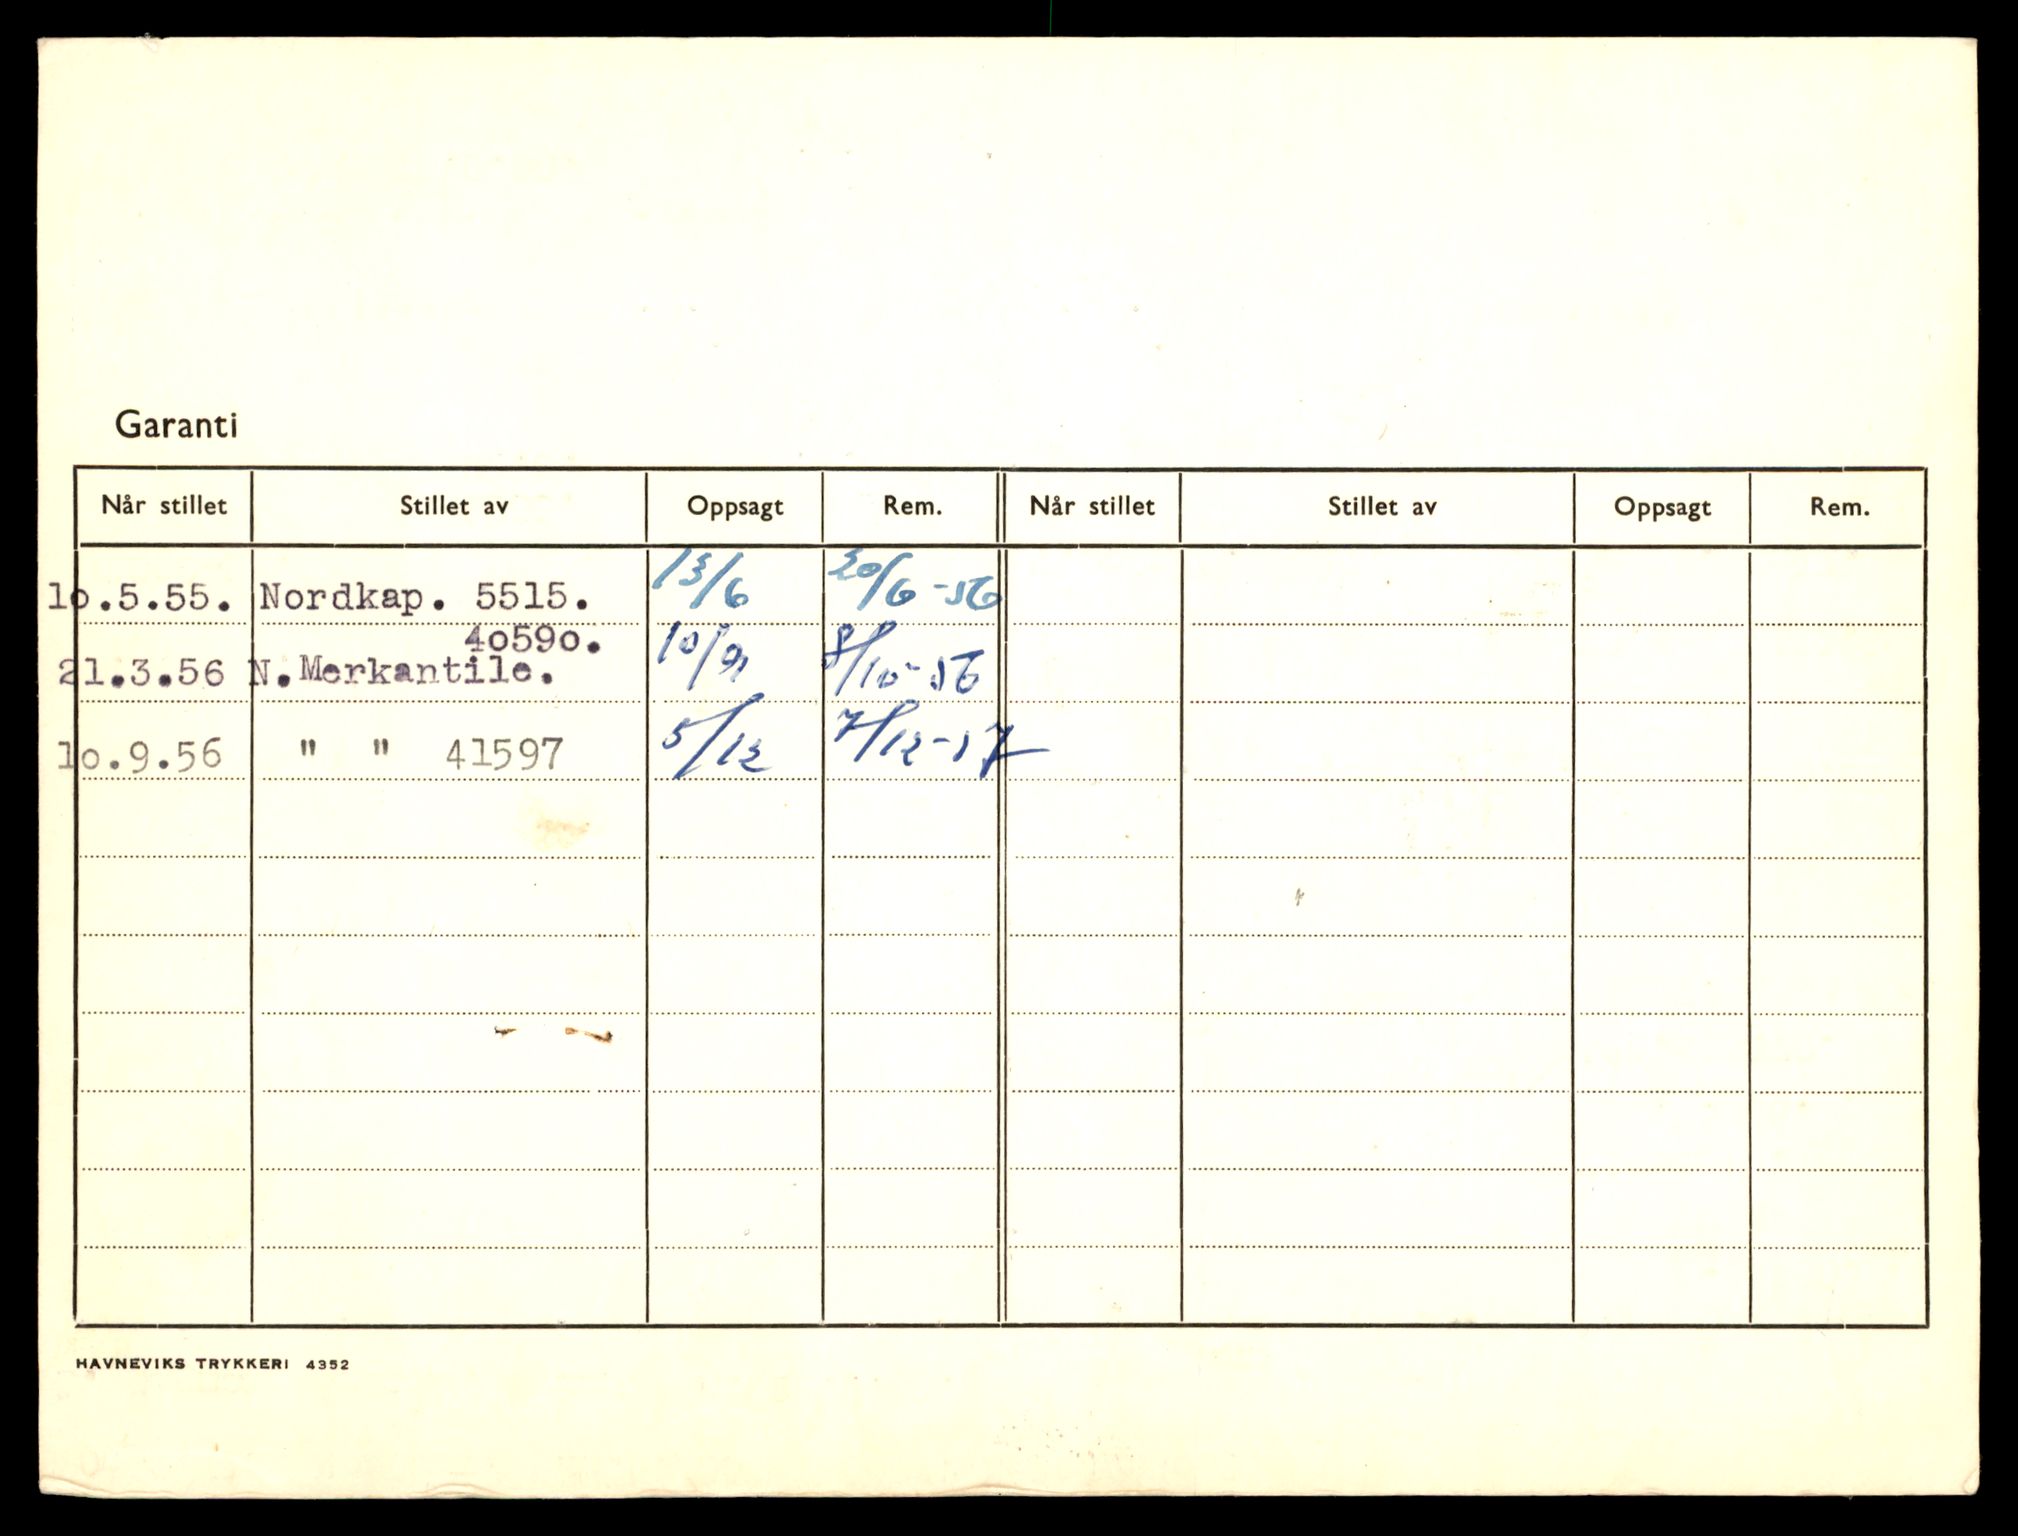 Garanti
Når stillet Stillet av Oppsagt Rem. Når stillet Stillet av Oppsagt Rem.
lo.5.55. Nordkap. 5515. 13/6 20/6-56
4o59o.
21.3.56 N.Merkantile. 10/9 8/10-56
lo.9.56 " " 41597 5/12 7/12-57
HAVNEVIKS TRYKKERI 4352